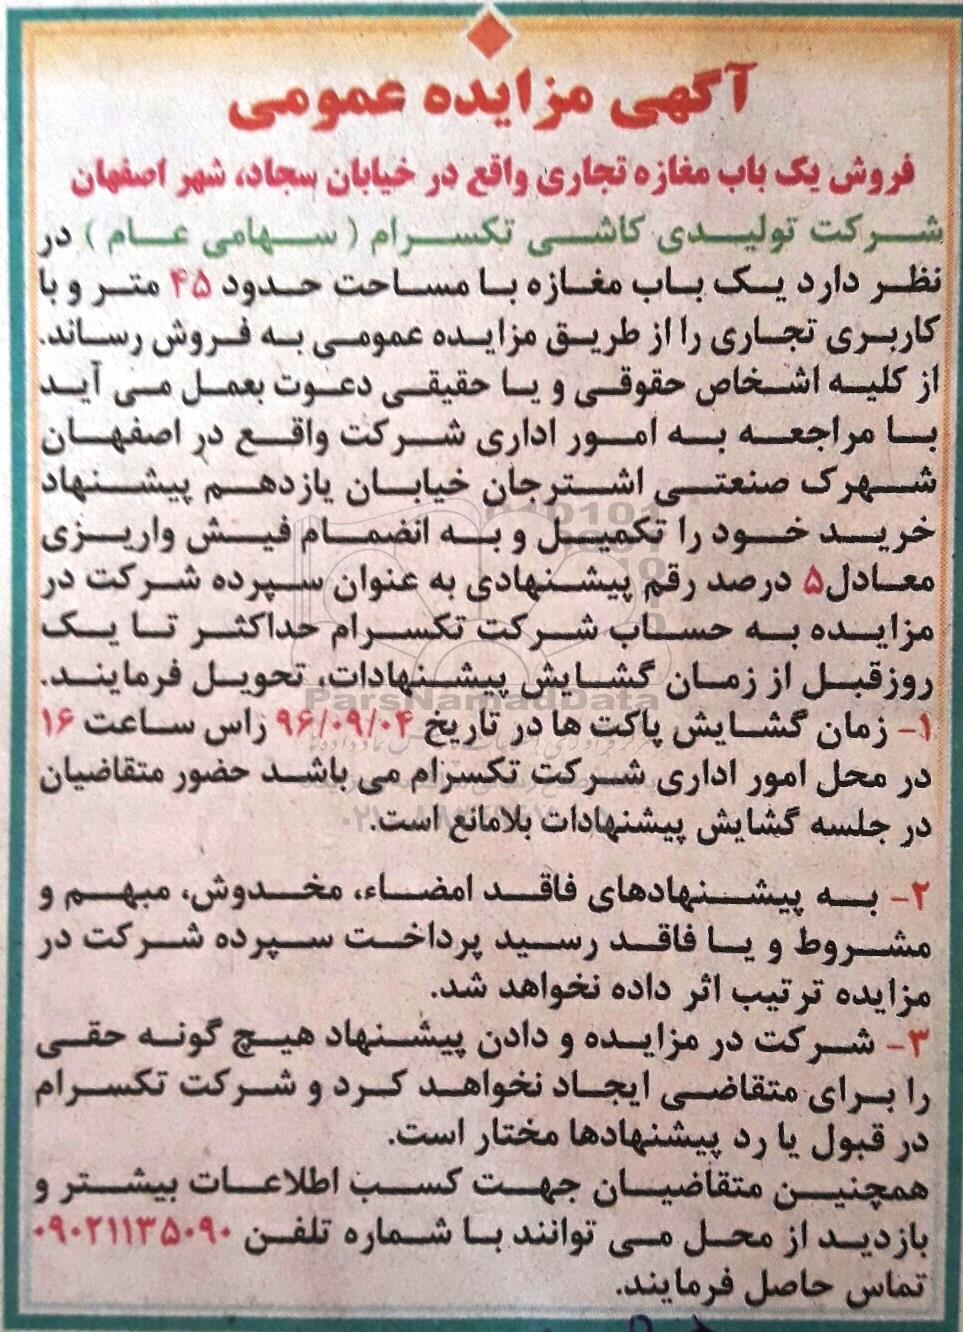 آگهی مزایده عمومی
فروش یک باب مغازه تجاری واقع در خیابان سجاد، شهر اصفهان
شرکت تولیدی کاشی تکسرام (سهامی عام) در
نظر دارد یک باب مغازه با مساحت حدود ۴۵ متر و با
کاربری تجاری را از طریق مزایده عمومی به فروش رساند.
از کلیه اشخاص حقوقی و یا حقیقی دعوت بعمل می آید
با مراجعه به امور اداری شرکت واقع در اصفهان
شهرک صنعتی اشترجان خیابان یازدهم پیشنهاد
خرید خود را تکمیل و به انضمام فیش واریزی
معادل۵ درصد رقم پیشنهادی به عنوان سپرده شرکت در
مزایده به حساب شرکت تکسرام حداکثر تا یک
روزقبل از زمان گشایش پیشنهادات، تحویل فرمایند.
۱- زمان گشایش پاکت ها در تاریخ ۹۶/۰۹/۰۴ راس ساعت ۱۶
در محل امور اداری شرکت تکسرام می باشد حضور متقاضیان
در جلسه گشایش پیشنهادات بلامانع است.
۲- به پیشنهادهای فاقد امضاء، مخدوش، مبهم و
مشروط و یا فاقد رسید پرداخت سپرده شرکت در
مزایده ترتیب اثر داده نخواهد شد.
۳- شرکت در مزایده و دادن پیشنهاد هیچ گونه حقی
را برای متقاضی ایجاد نخواهد کرد و شرکت تکسرام
در قبول یا رد پیشنهادها مختار است.
همچنین متقاضیان جهت کسب اطلاعات بیشتر و
بازدید از محل می توانند با شماره تلفن ۰۹۰۲۱۱۳۵۰۹۰
تماس حاصل فرمایند.
ParsNamadData